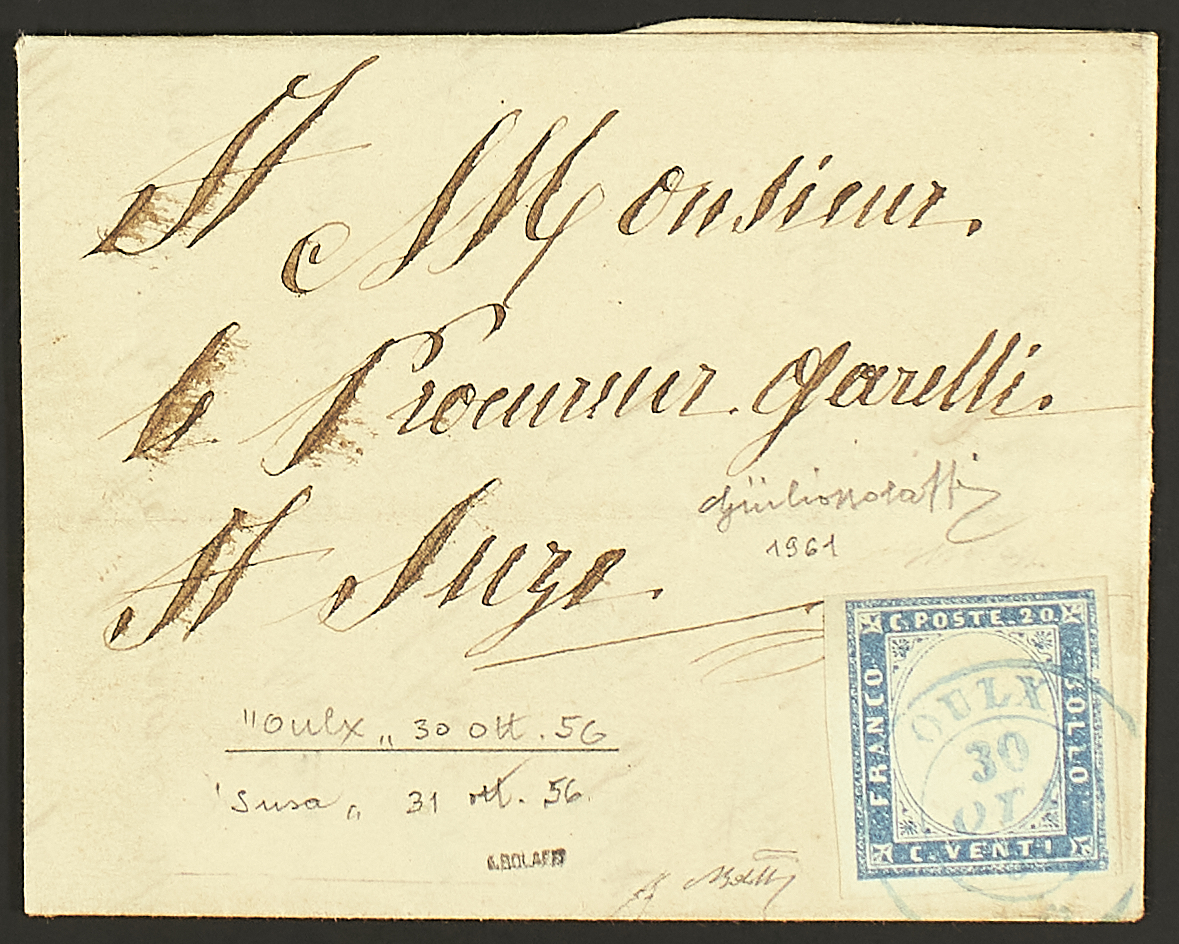 A Monsieur.
le Procureur Garelli.
A Suze.
1961
C. POSTE. 20.
FRANCO
BOLLO
C. VENTI
OULX
30
OT
"Oulx„ 30 Ott. 56
Susa„ 31 ott. 56.
A. BOLAFFI